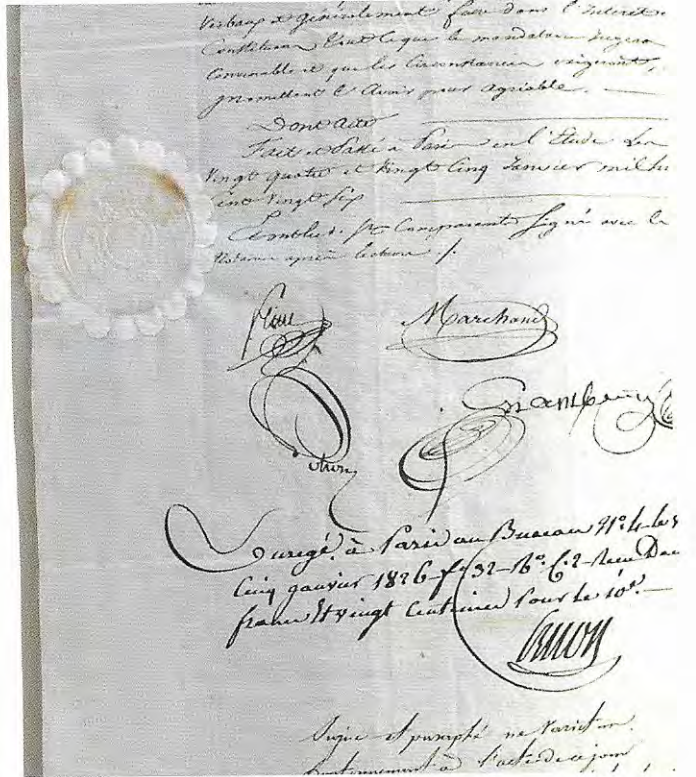 Verbaux et généralement faire dans l'intérêt
Constituant tout ce que le mandataire jugera
Convenable et que les Circonstances exigeront,
promettant l'avoir pour agréable.
Dont acte
Fait et Passé à Paris en l'Etude Les
Vingt quatre et Vingt Cinq Janvier mil hu
Cent Vingt Six
les Comparants signé avec le
Notaires après lecture /.
Marchand
Enregé. à Paris au Bureau N.º 4 le v
Cinq janvier 1826 fº 32 Rº C. 2 Recu Deu
francs Et vingt Centimes Pour le 10e.
Signé et paraphé ne varietur
à l'acte de ce jour